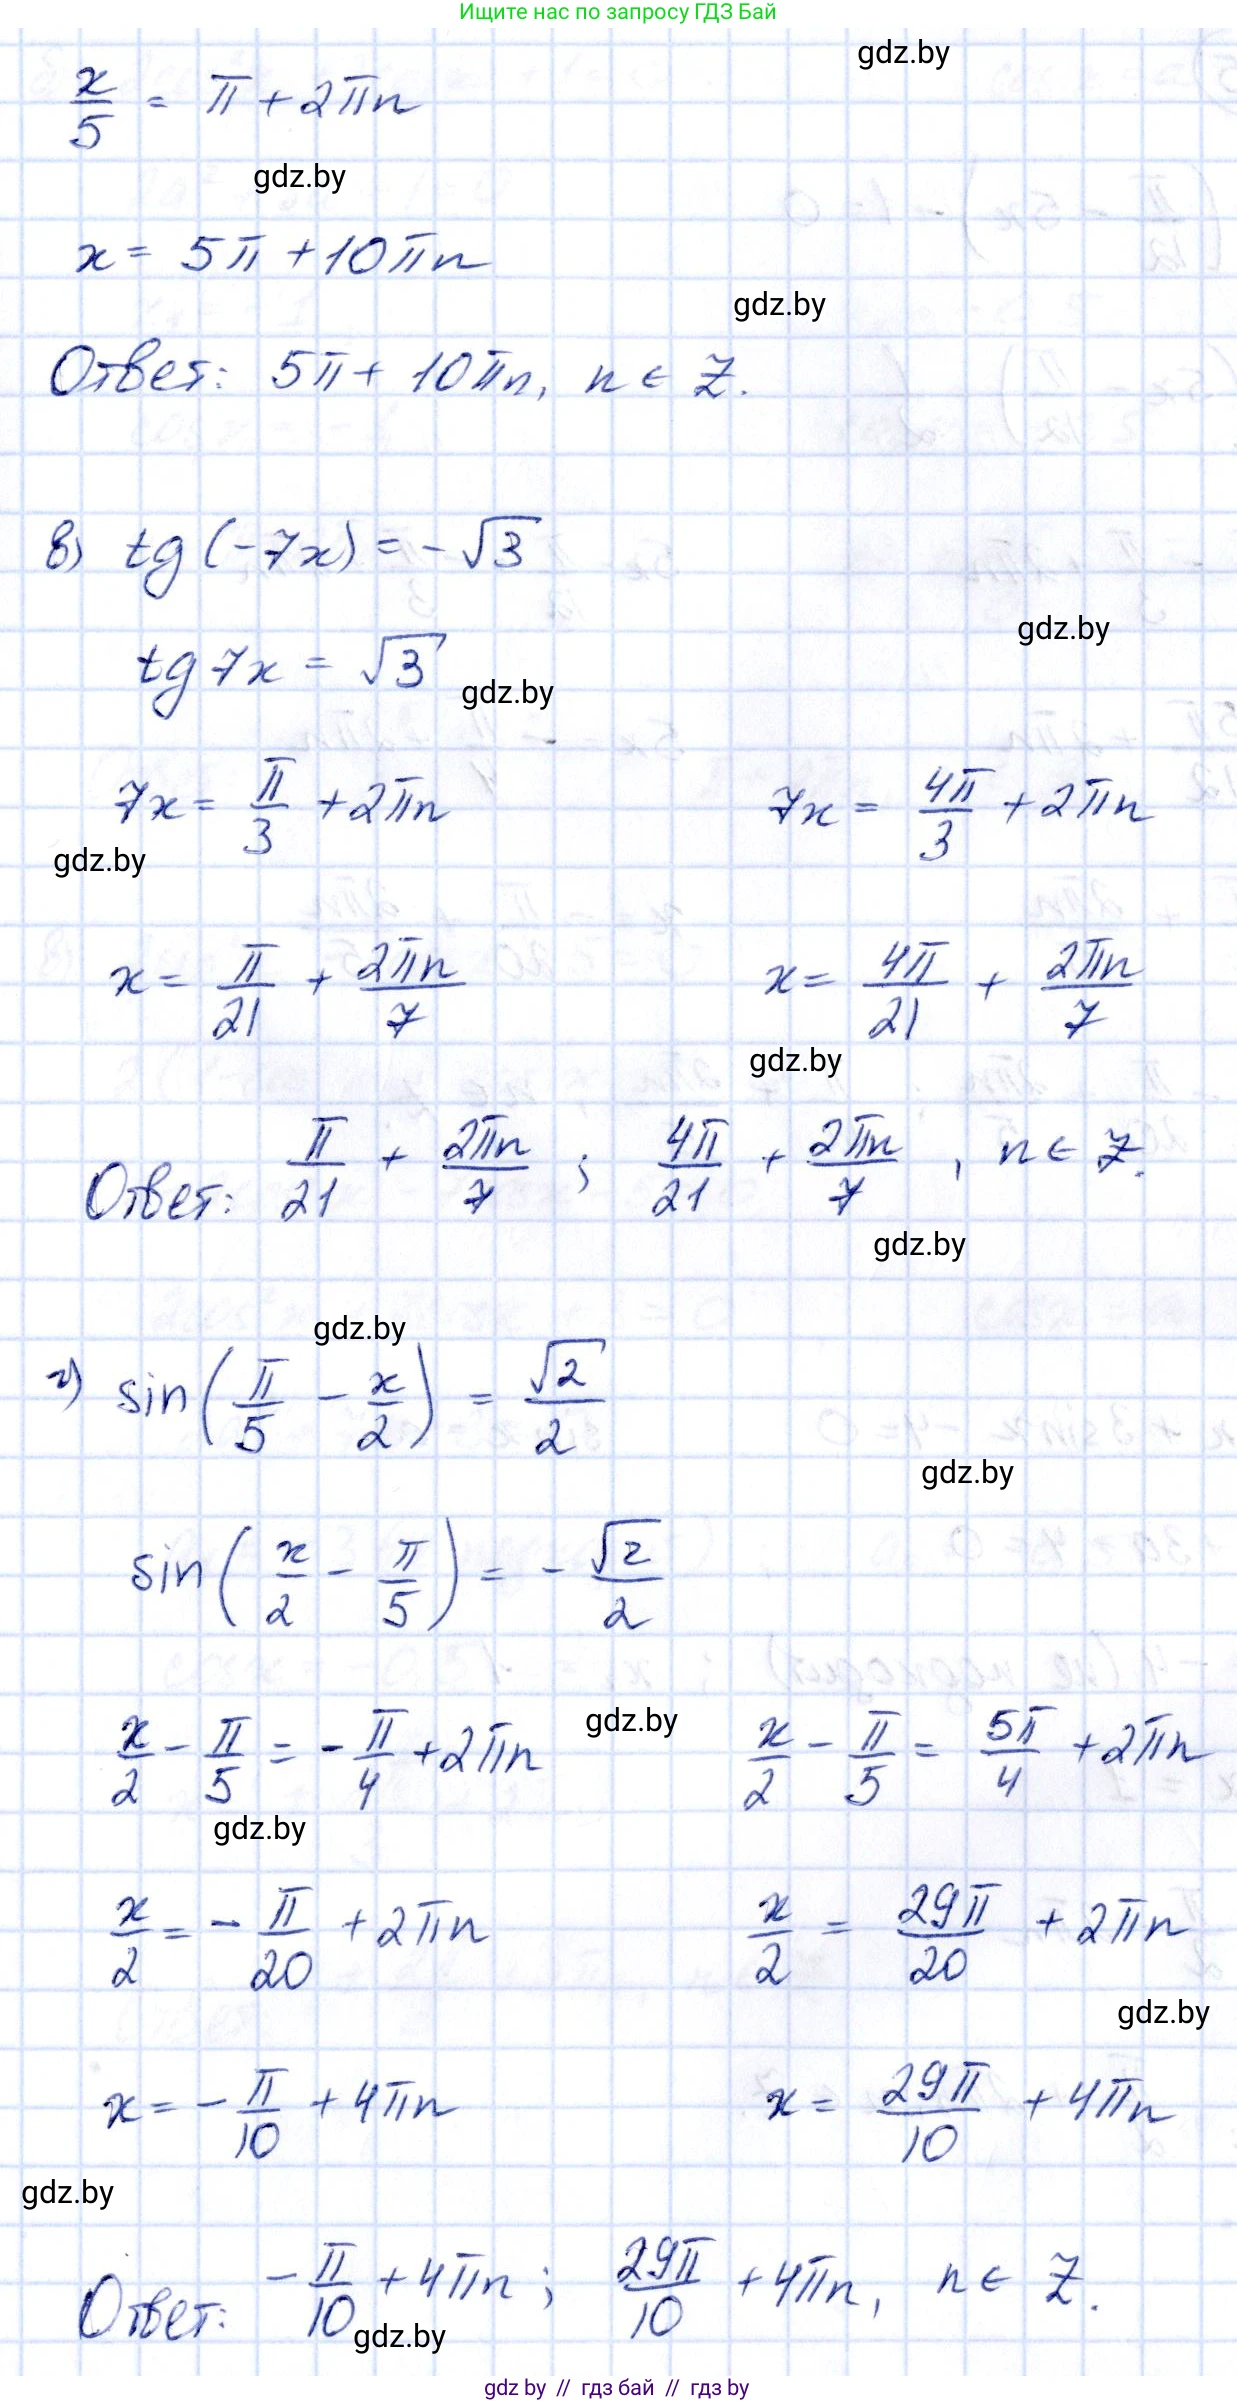 Ищите нас по запросу ГДЗ Бай
gdz.by
x/5 = π + 2πn
gdz.by
x = 5π + 10πn
gdz.by
Ответ: 5π + 10πn, n ∈ Z.
в) tg(-7x) = -√3
gdz.by
tg 7x = √3
gdz.by
7x = π/3 + 2πn    7x = 4π/3 + 2πn
gdz.by
x = π/21 + 2πn/7    x = 4π/21 + 2πn/7
gdz.by
Ответ: π/21 + 2πn/7 ; 4π/21 + 2πn/7 , n ∈ Z.
gdz.by
gdz.by
г) sin(π/5 - x/2) = √2/2
gdz.by
sin(x/2 - π/5) = -√2/2
gdz.by
x/2 - π/5 = -π/4 + 2πn    x/2 - π/5 = 5π/4 + 2πn
gdz.by
x/2 = -π/20 + 2πn    x/2 = 29π/20 + 2πn
gdz.by
x = -π/10 + 4πn    x = 29π/10 + 4πn
gdz.by
Ответ: -π/10 + 4πn ; 29π/10 + 4πn, n ∈ Z.
gdz.by
gdz by // гдз бай // гдз by